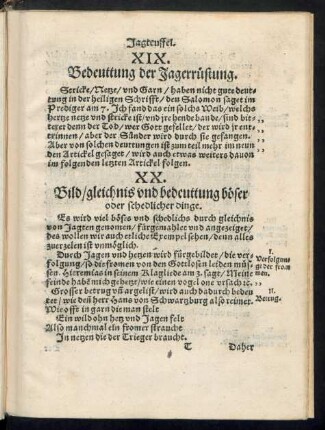 Jagteuffel.
XIX.
Bedeuttung der Jagerrüstung.
Stricke/Netze/ vnd Garn / haben nicht gute deut-
tung in der heiligen Schrifft/ den Salomon saget im
Prediger am 7. Jch fand das ein solchs Weib/welchs
hertze netze vnd stricke ist/vnd jre hende bande/sind bit-
terer denn der Tod/wer Gott gefellet/ der wird jr ent-
trinnen/ aber der Sünder wird durch sie gefangen.
Aber von solchen deuttungen ist zum teil mehr im neun
den Artickel gesaget / wird auch etwas weiters dauon
im folgenden letzten Artickel folgen.
XX.
Bild/gleichnis vnd bedeuttung böser
oder schedlicher dinge.
Es wird viel böses vnd schedlichs durch gleichnis
von Jagten genomen/ fürgemahlet vnd angezeiget/
des wollen wir auch etliche Exempel sehen/denn alles
zuerzelen ist vnmöglich.
Durch Jagen vnd hetzen wird fürgebilder/ die ver-
folgung/so die fromen von den Gottlosen leiden müs-
sen. Hieremias in seinem Klagliede am 3. sagt/ Meine
feinde habē mich gehetz/wie einen vogel one vrsach ꝛc.
I.
Verfolgun-
ge der from
men.
Grosser betrug vñ argelist/wird auch dadurch bedeu
tet/ wie deñ herr Hans von Schwartzburg also reimet.
II.
Betrug.
Wie offt in garn die man stelt
Ein wild ohn hetz vnd Jagen felt
Also manchmal ein fromer straucht
In netzen die der Trieger braucht.
T
Daher